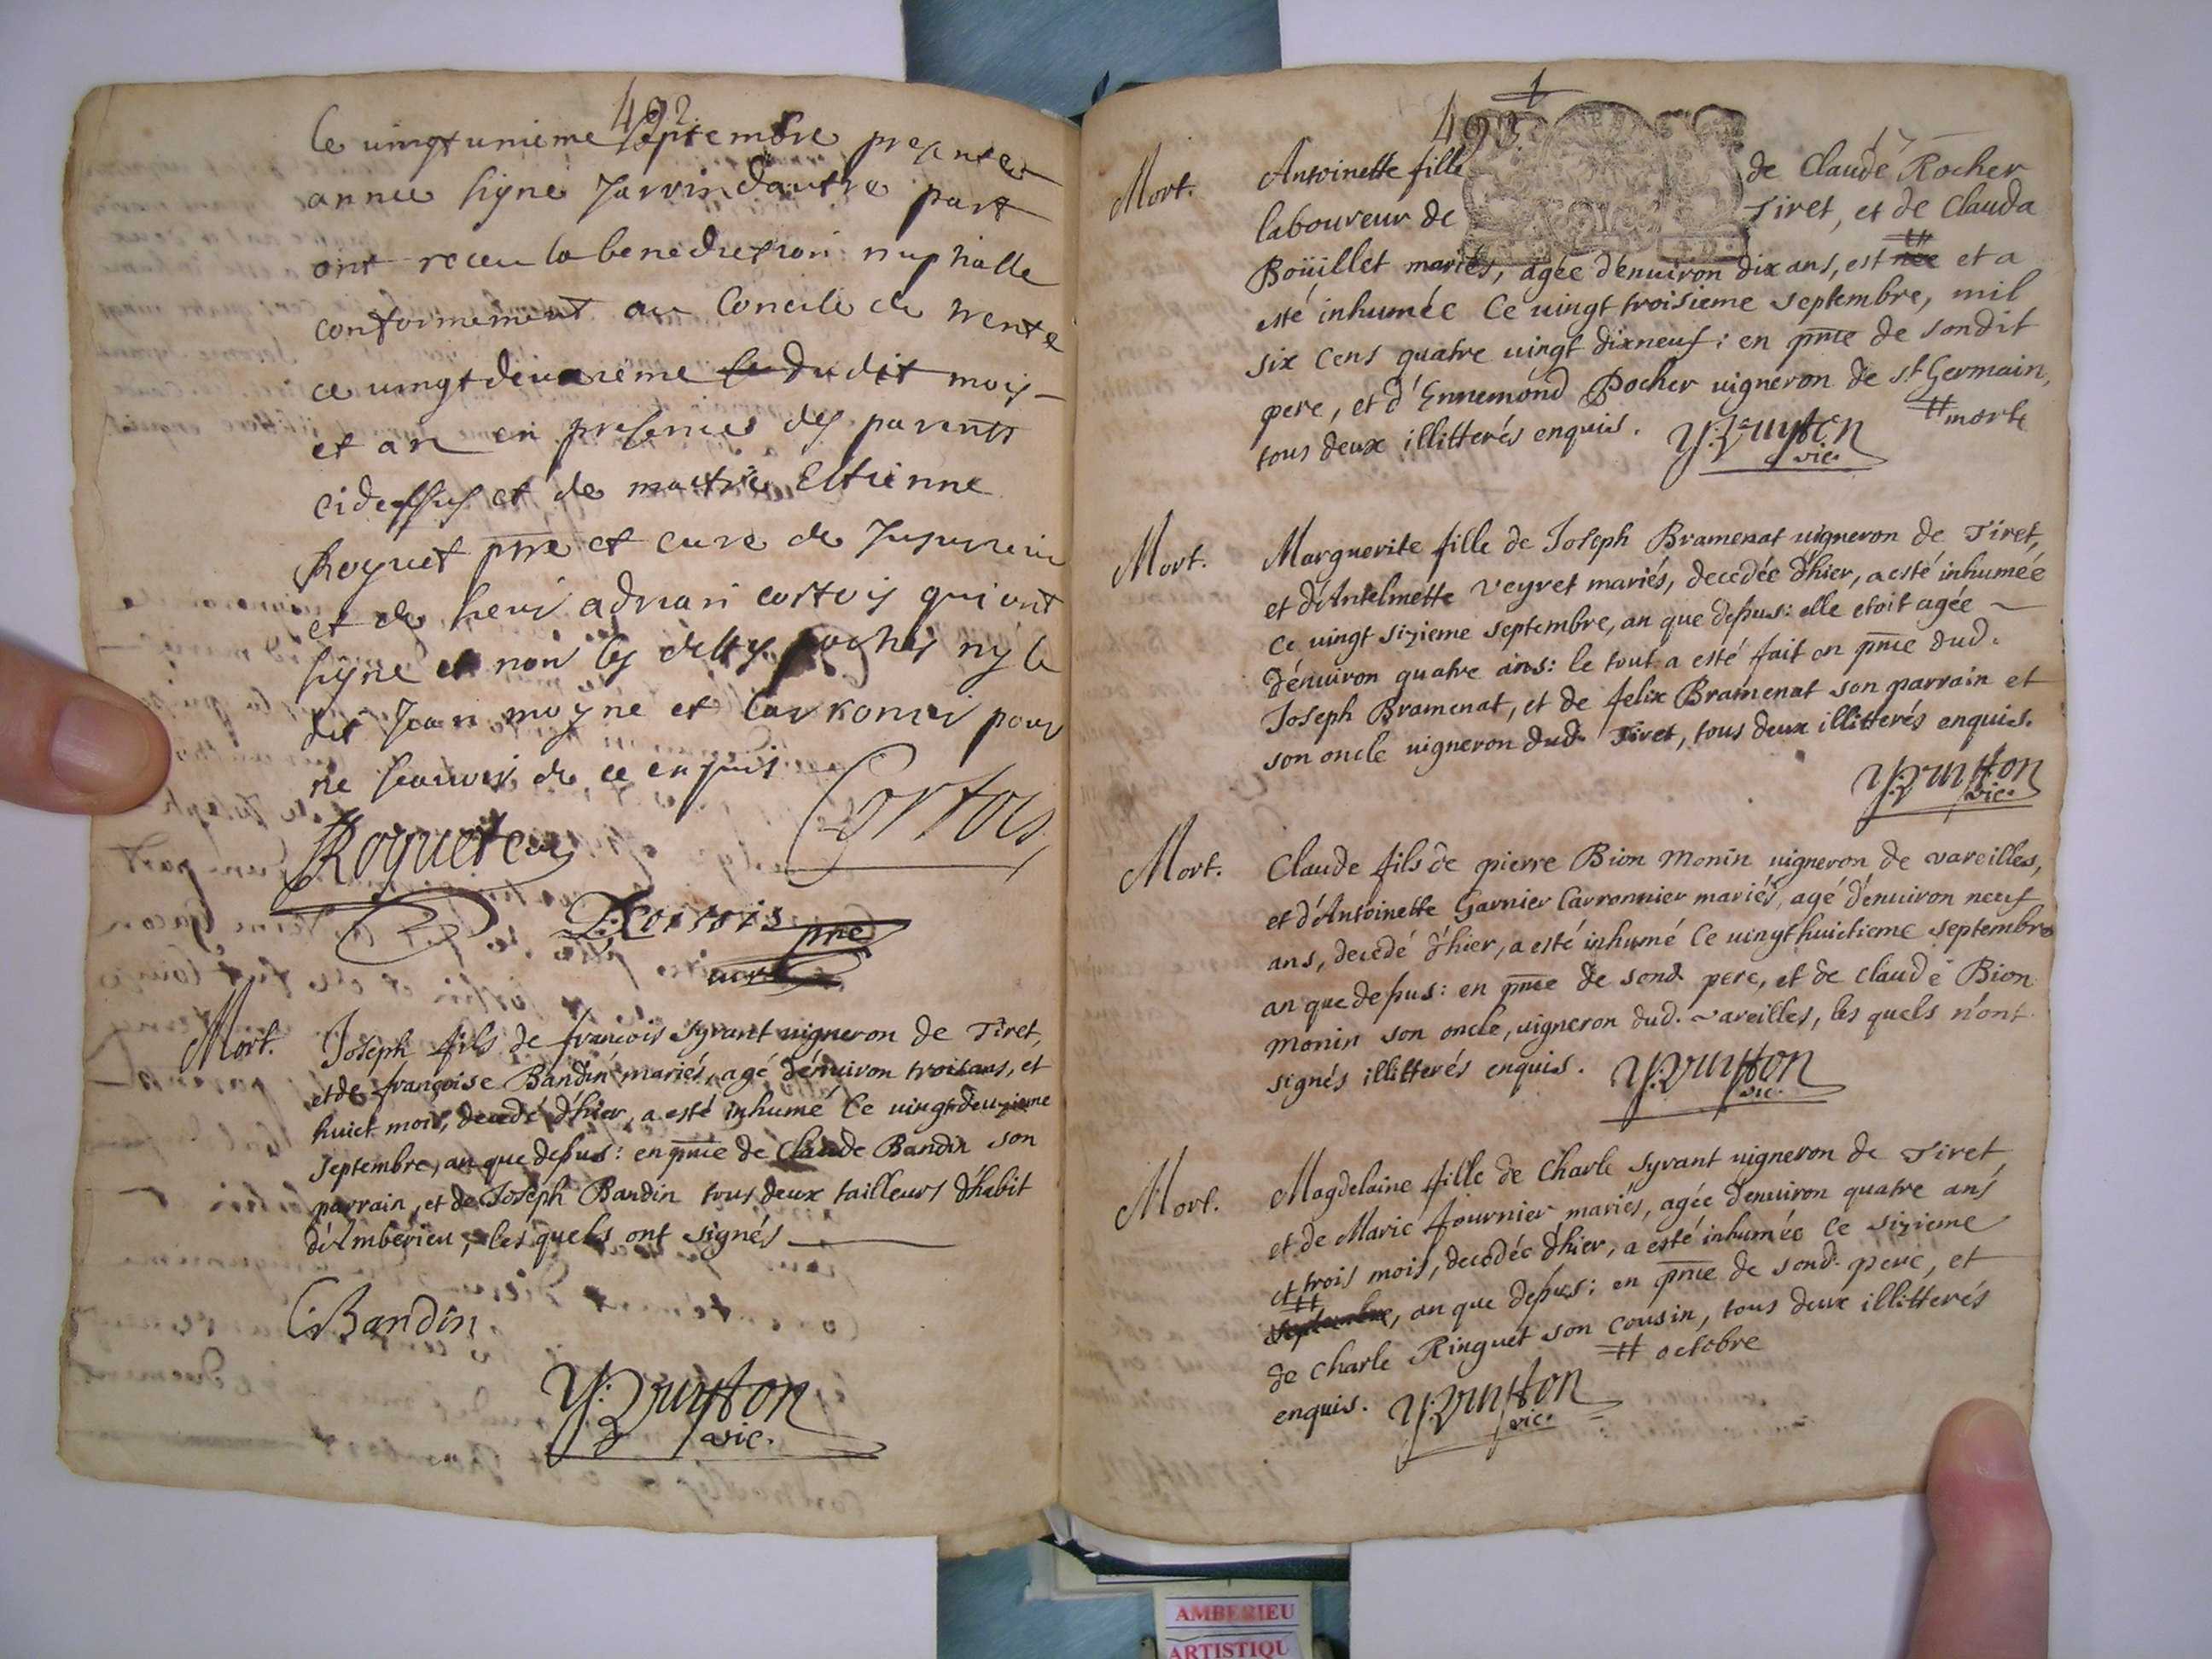 492
le vingt unieme septembre presente
annee signé Jarvin d'autre part
ont receu la benediction nuptialle
conformement au Concile de trente
ce vingt deuxieme dudit mois
et an en presence des parents
cidessus et de maitre Estienne
Roguet pr̄e et curé de Jujurieu
et de sieur adrian cortois qui ont
signe et non les dittes parties ny le
dit Jean moyne et Carronier pour
ne scavoir de ce enquis
Cortois
Roguet cu
Cortois
pr̄e
Mort. Joseph fils de françois Syrant vigneron de Tiret,
et de françoise Bandin mariés, agé d'énuiron trois ans, et
huict mois, decedé d'hier, a esté inhumé Ce vingt deuzieme
Septembre, an que dessus: en pn̄ce de Claude Bandin son
parrain, et de Joseph Bandin tous deux tailleurs d'habit
d'Amberieu, les quels ont signés
CBandin
vic.
493
Mort. Antoinette fille de Claude Rocher
laboureur de Tiret, et de Clauda
Boüillet mariés, agée d'enuiron dix ans, est # née et a
esté inhumée Ce vingt troisieme septembre, mil
six Cens quatre vingt dixneuf: en pn̄ce de sondit
pere, et d'Ennemond Rocher vigneron de st Germain,
tous deux illitterés enquis. # morte
vic.
Mort. Marguerite fille de Joseph Bramenat vigneron de Tiret,
et d'Antelmette Veyret mariés, decedée d'hier, a esté inhumée
Ce vingt sizieme septembre, an que dessus: elle etoit agée
d'enuiron quatre ans: le tout a esté fait en pn̄ce dud.
Joseph Bramenat, et de felix Bramenat son parrain et
son oncle vigneron dud. Tiret, tous deux illitterés enquis.
vic.
Mort. Claude fils de pierre Bion Monin vigneron de vareilles,
et d'Antoinette Garnier Carronnier mariés, agé d'enuiron neuf
ans, decedé d'hier, a esté inhumé Ce vingt huictieme septembre
an que dessus: en pn̄ce de sond. pere, et de Claude Bion
Monin son oncle, vigneron dud. vareilles, les quels n'ont
signés illitterés enquis.
vic.
Mort. Magdelaine fille de Charle Syrant vigneron de Tiret,
et de Marie fournier mariés, agée d'enuiron quatre ans
et trois mois, decedée d'hier, a esté inhumée Ce sizieme
# septembre, an que dessus: en pn̄ce de sond. pere, et
de Charle Ringuet son cousin, tous deux illitterés
enquis. # octobre
vic.
AMBERIEU
ARTISTIQU